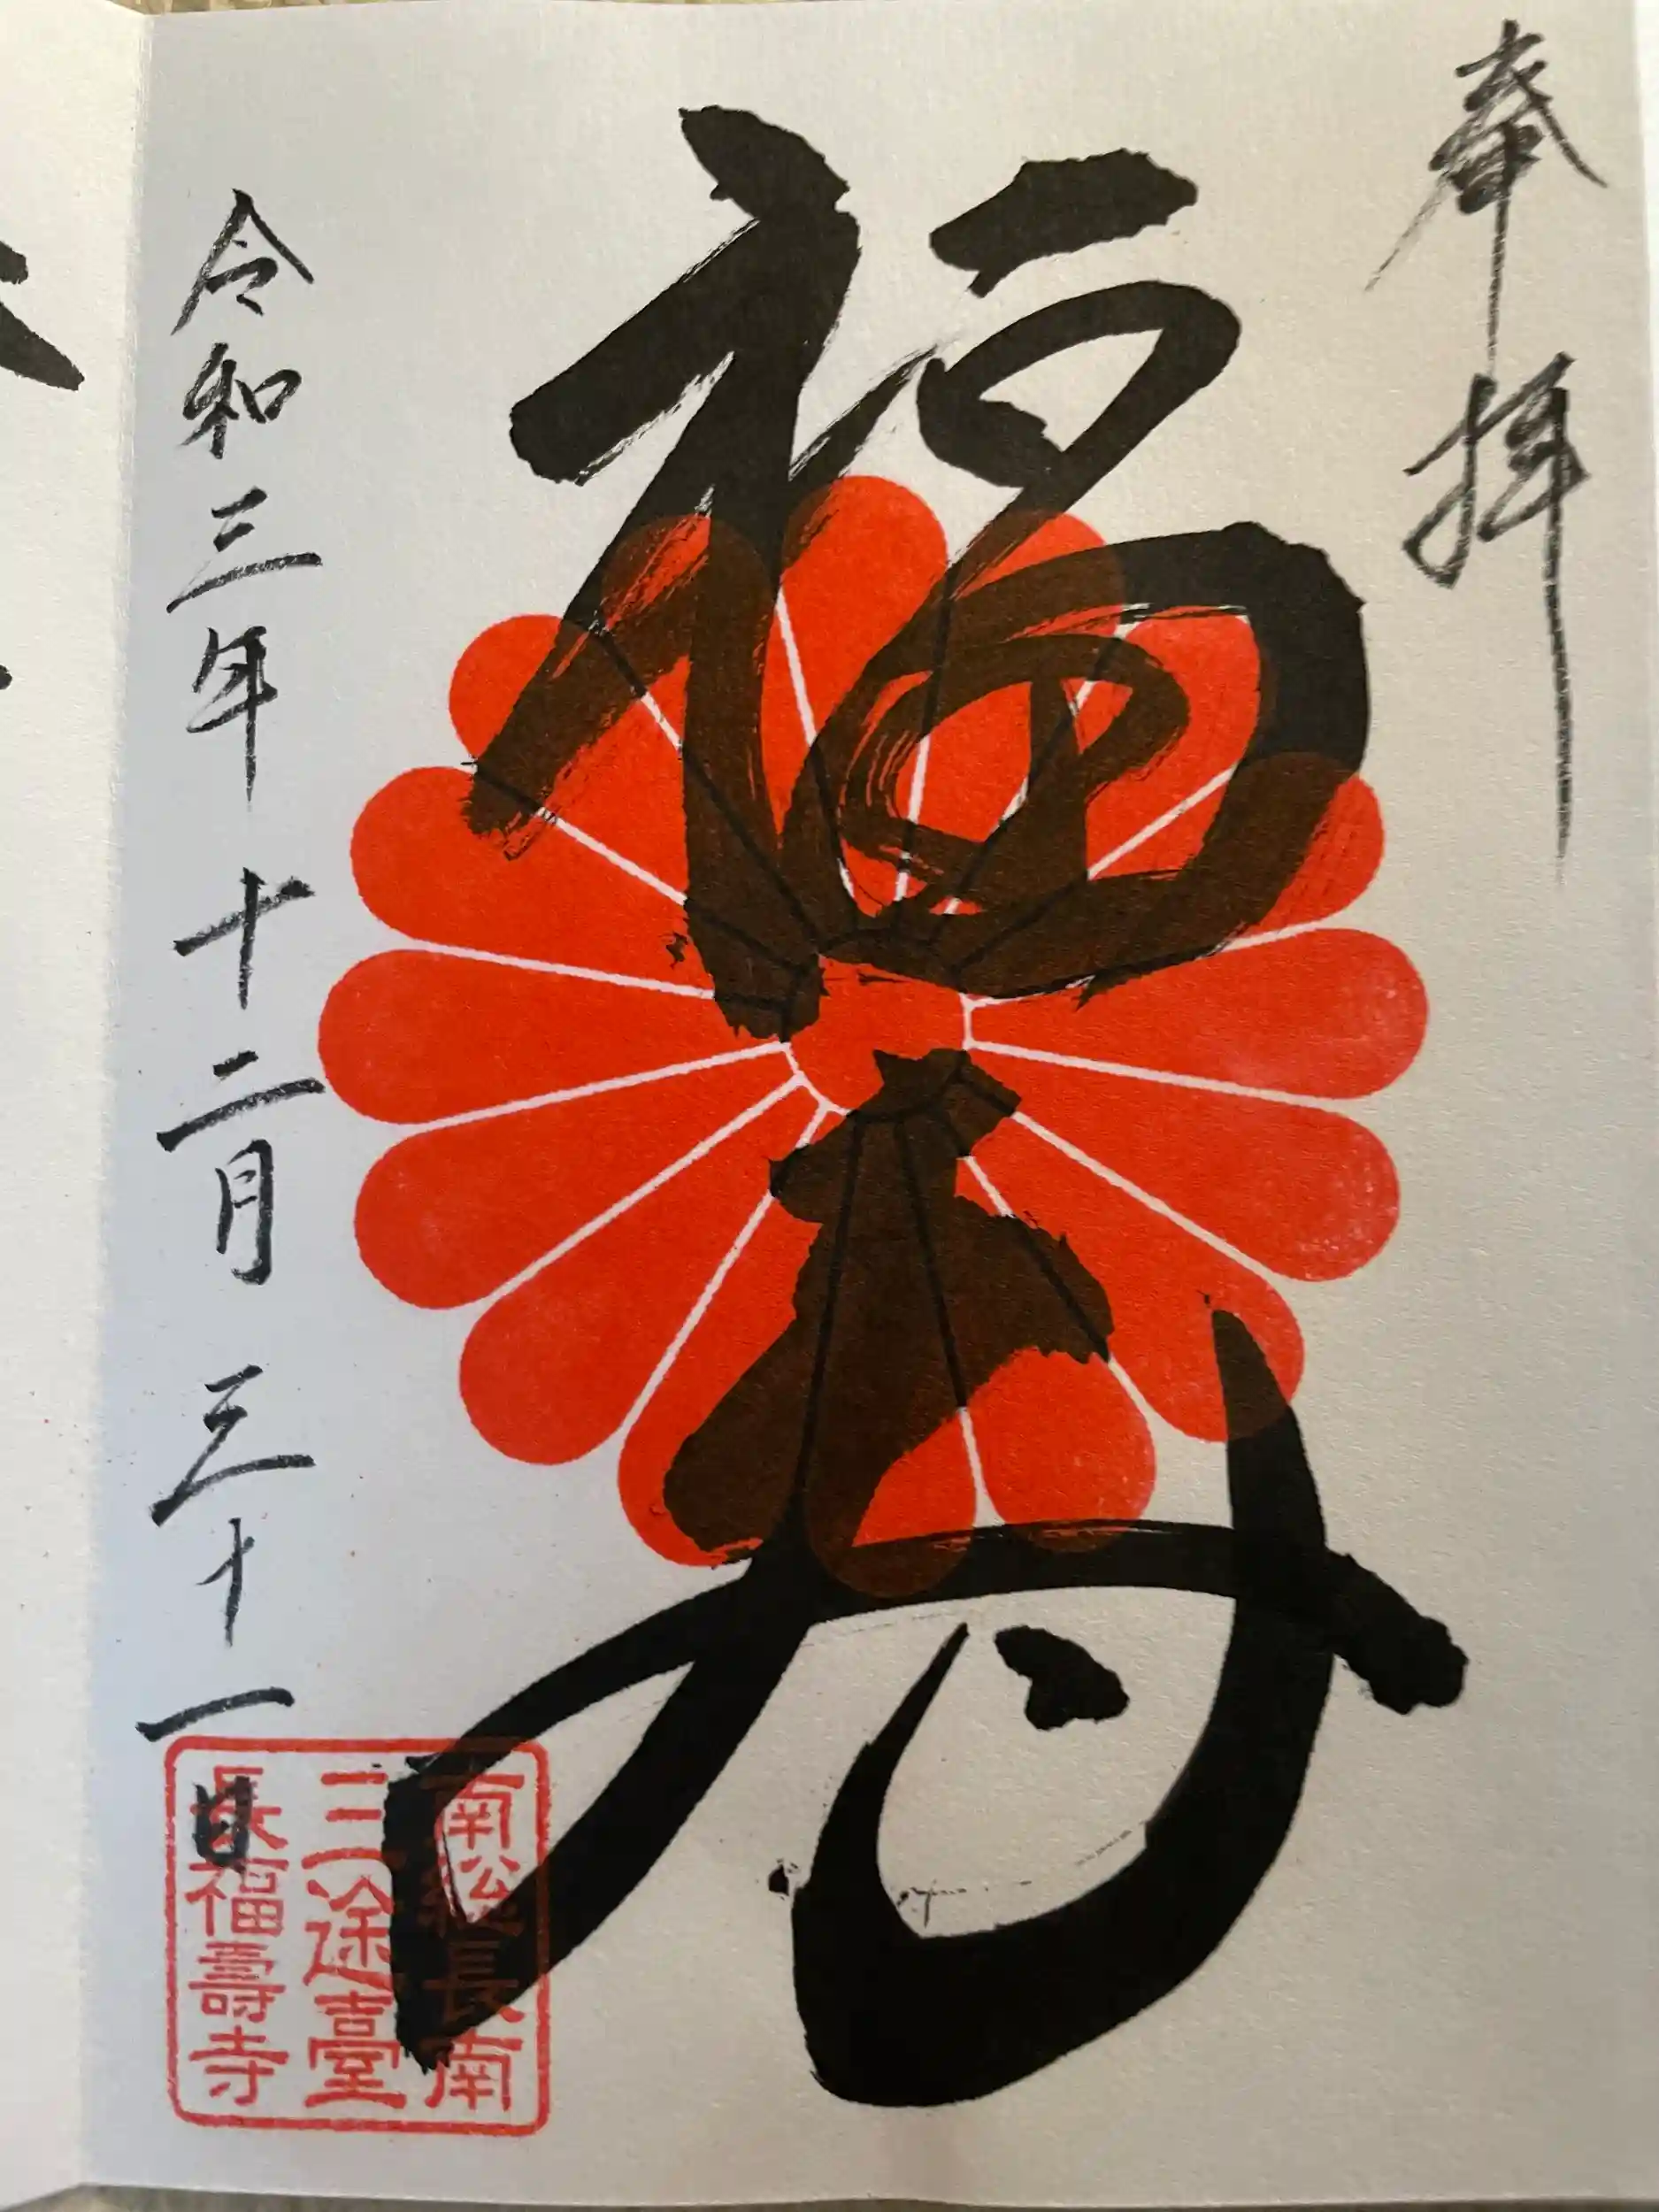 奉拝
福寿
令和三年十二月三十一日
南総長南
三途臺
長福壽寺